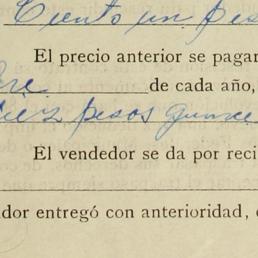 Ciento un pes
El precio anterior se pagar
bre de cada año,
diez pesos quince
El vendedor se da por reci
dor entregó con anterioridad,